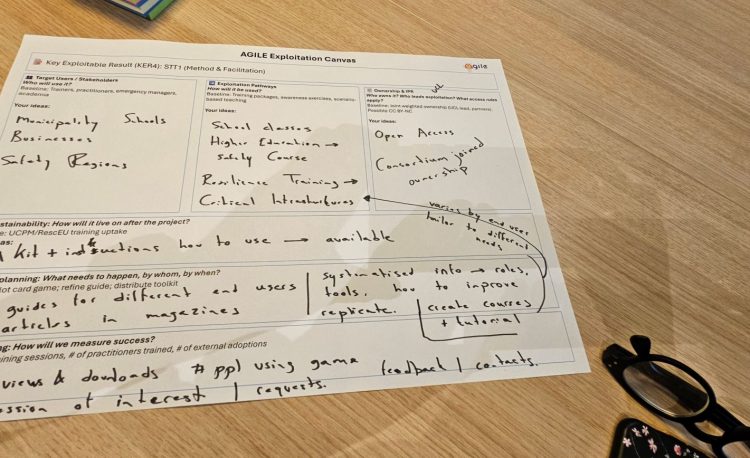 AGILE Exploitation Canvas
Key Exploitable Result (KER4): STT1 (Method & Facilitation)
agile
Target Users / Stakeholders
Who will use it?
Baseline: Trainers, practitioners, emergency managers,
academia
Your ideas:
Municipality Schools
Businesses
Safety Regions
Exploitation Pathways
How will it be used?
Baseline: Training packages, awareness exercises, scenario-
based teaching
Your ideas:
School classes
Higher Education →
Safety Course
Resilience Training →
Critical Infrastructures
Ownership & IPR
Who owns it? Who leads exploitation? What access rules
apply?
Baseline: Joint weighted ownership (UCL lead, partners).
Possible CC BY-NC
Your ideas:
Open Access
Consortium joined
ownership
varies by end user
tailor to different
needs
stainability: How will it live on after the project?
e: UCPM/RescEU training uptake
as:
Kit + instructions how to use → available
planning: What needs to happen, by whom, by when?
lot card game; refine guide; distribute toolkit
guides for different end users
articles in magazines
systematised info → roles,
tools, how to improve
replicate.
create courses
+ tutorial
ng: How will we measure success?
ining sessions, # of practitioners trained, # of external adoptions
views & downloads # ppl using game feedback / contacts.
ession of interest / requests.